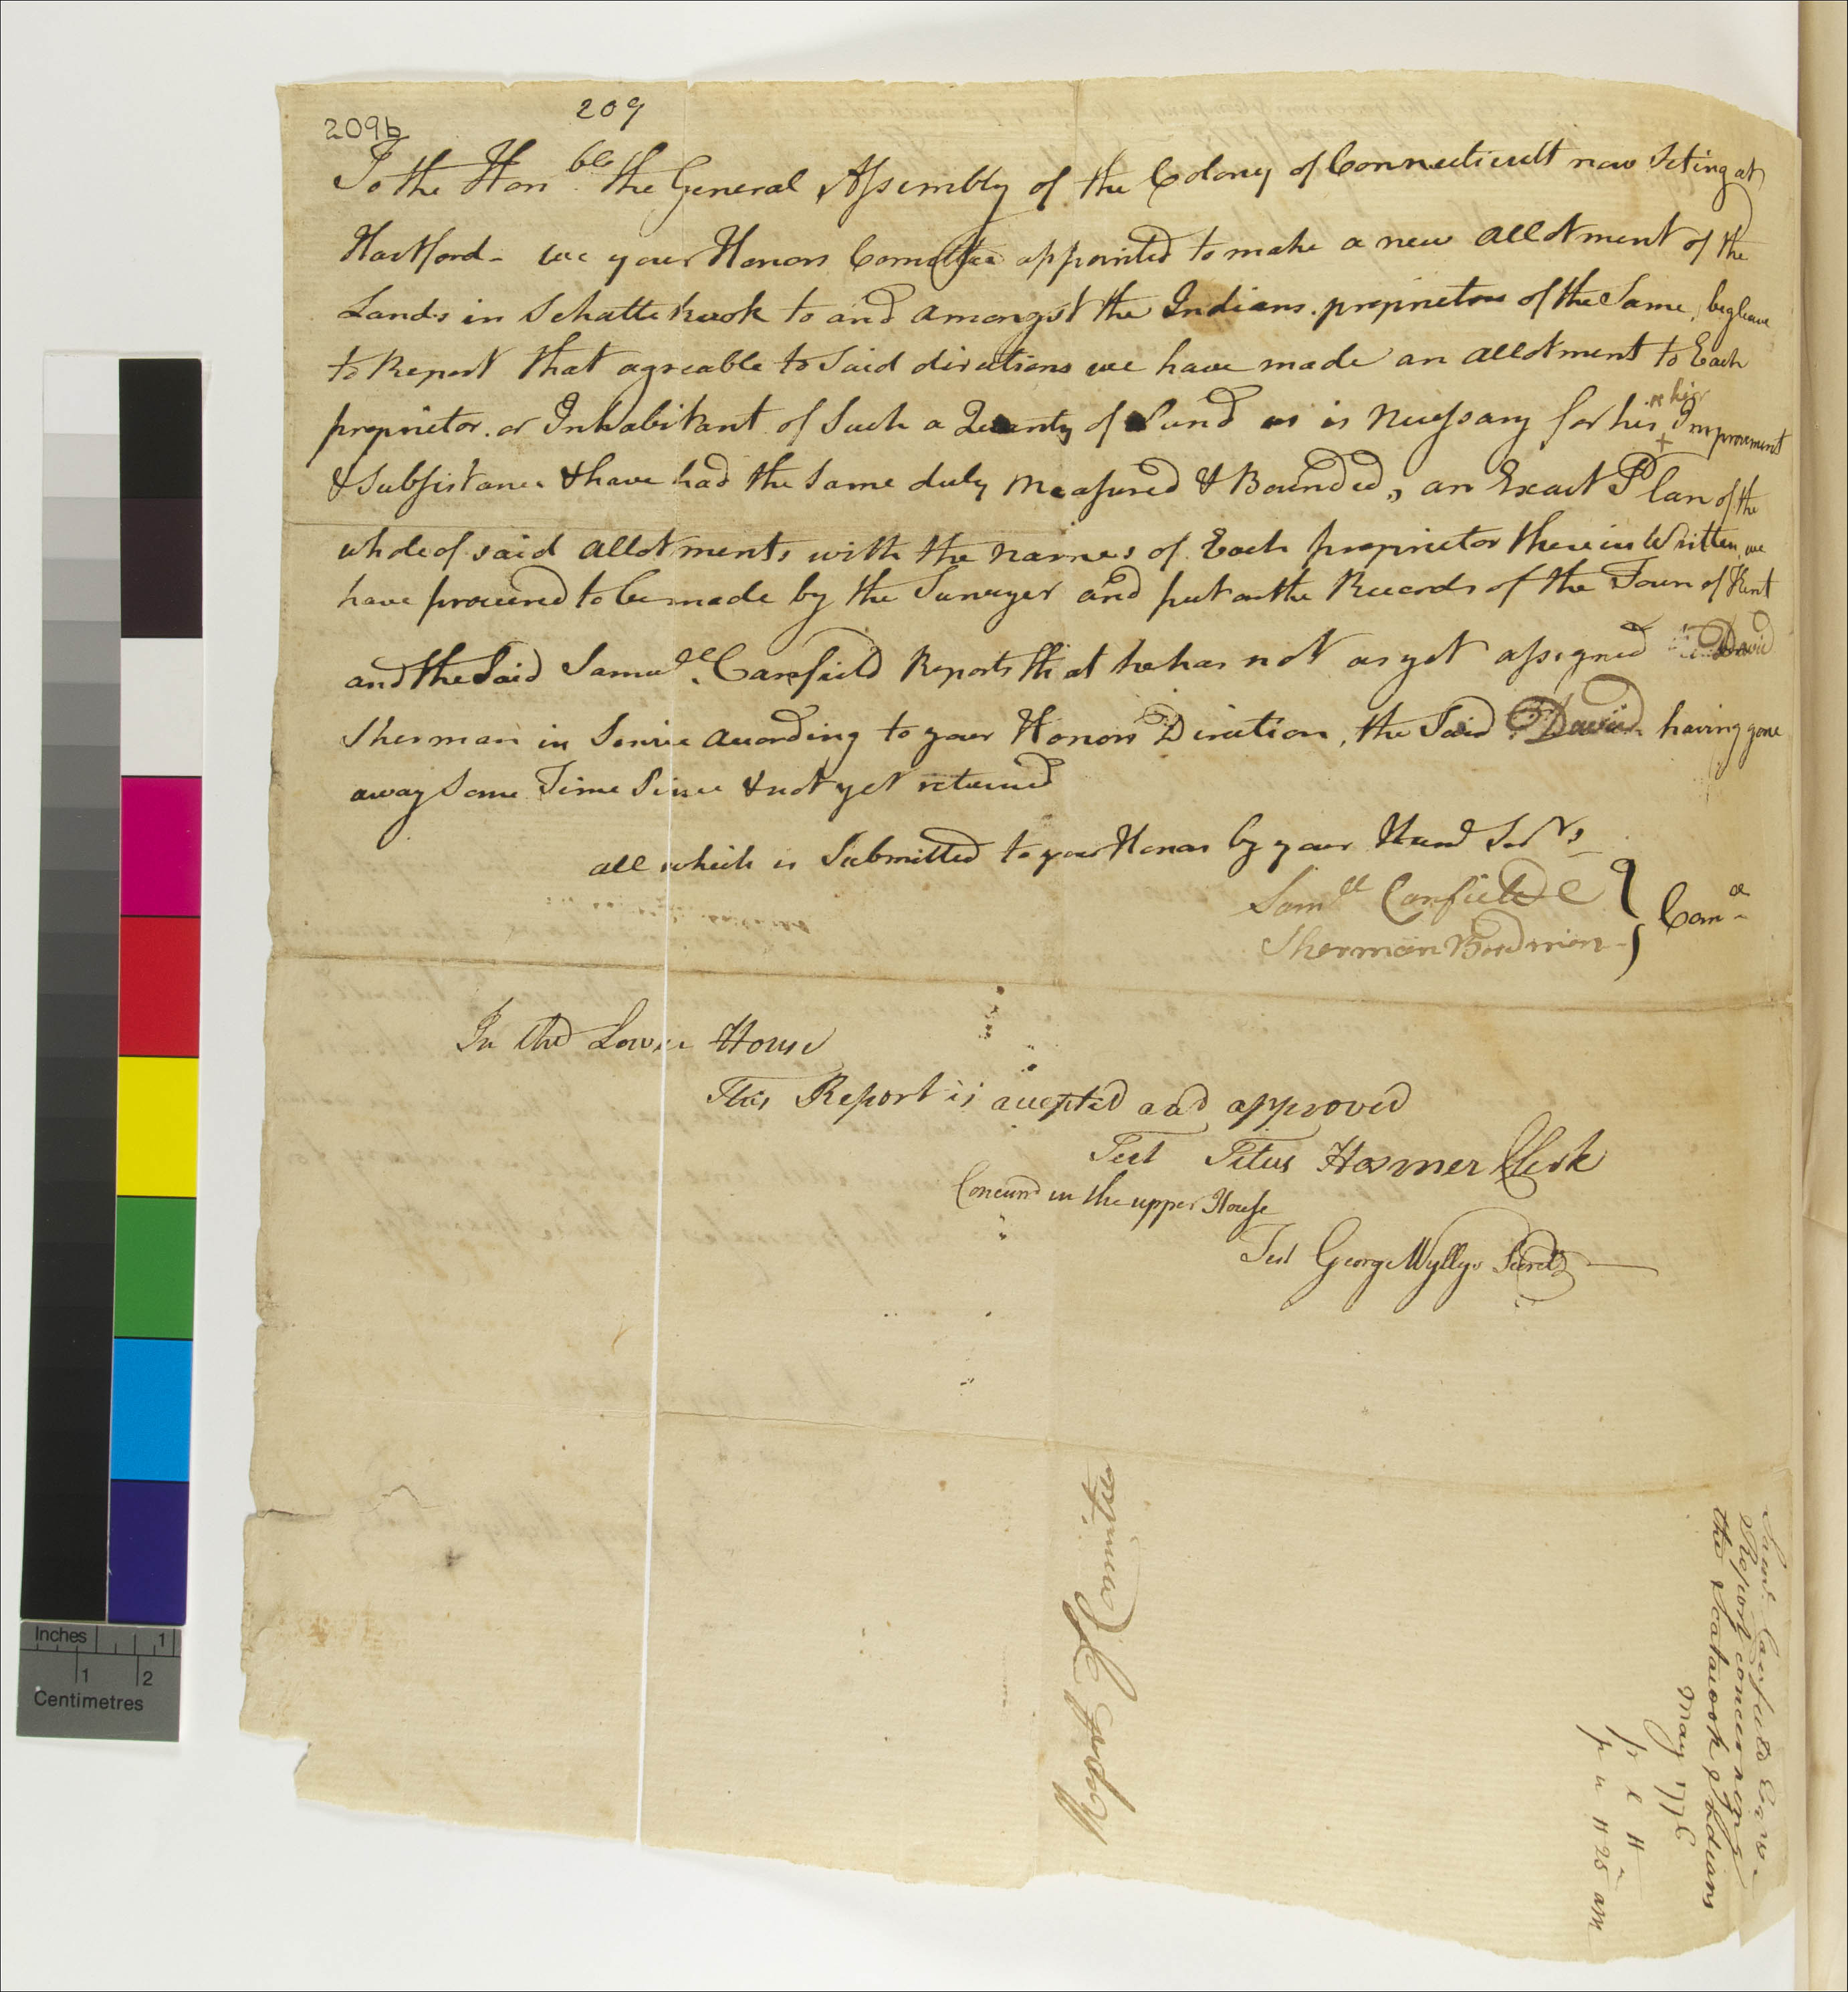 209
209b
To the Honble. the General Assembly of the Colony of Connecticutt now Seting at
Hartford - we your Honors Comettee appointed to make a new allotment of the
Lands in Schattekuok to and amongst the Indians proprietors of the Same, beg leave
to Report that agreable to Said directions we have made an allotment to Each
proprietor or Inhabitant of Such a Quanty of Land as is Necessary for his or her Improvement
& Subsistance & have had the Same duly Measured & Bounded, an Exact Plan of the
whole of said allotments with the names of Each proprietor therein Written, we
have procured to be made by the Surveyer and put on the Records of the Town of Kent
and the Said Samuell. Canfield Reports that he has not as yet assigned David
Sherman in Service according to your Honors Direction, the Said David having gone
away Some Time Since & not yet returned
all which is Submitted to your Honors by your Humd Servts
Samll Canfield
Sherman Boardman
Comee
In the Lower House
This Report is accepted and approved
Test Titus Hosmer Clerk
Concurrd in the upper House
Test George Wyllys Secrety
Report of Committee
Samll Canfield Esqrs
Report concerning
the Scatacook Indians
May 1776
p l H
p u H 25 am
Inches 1
1 2
Centimetres